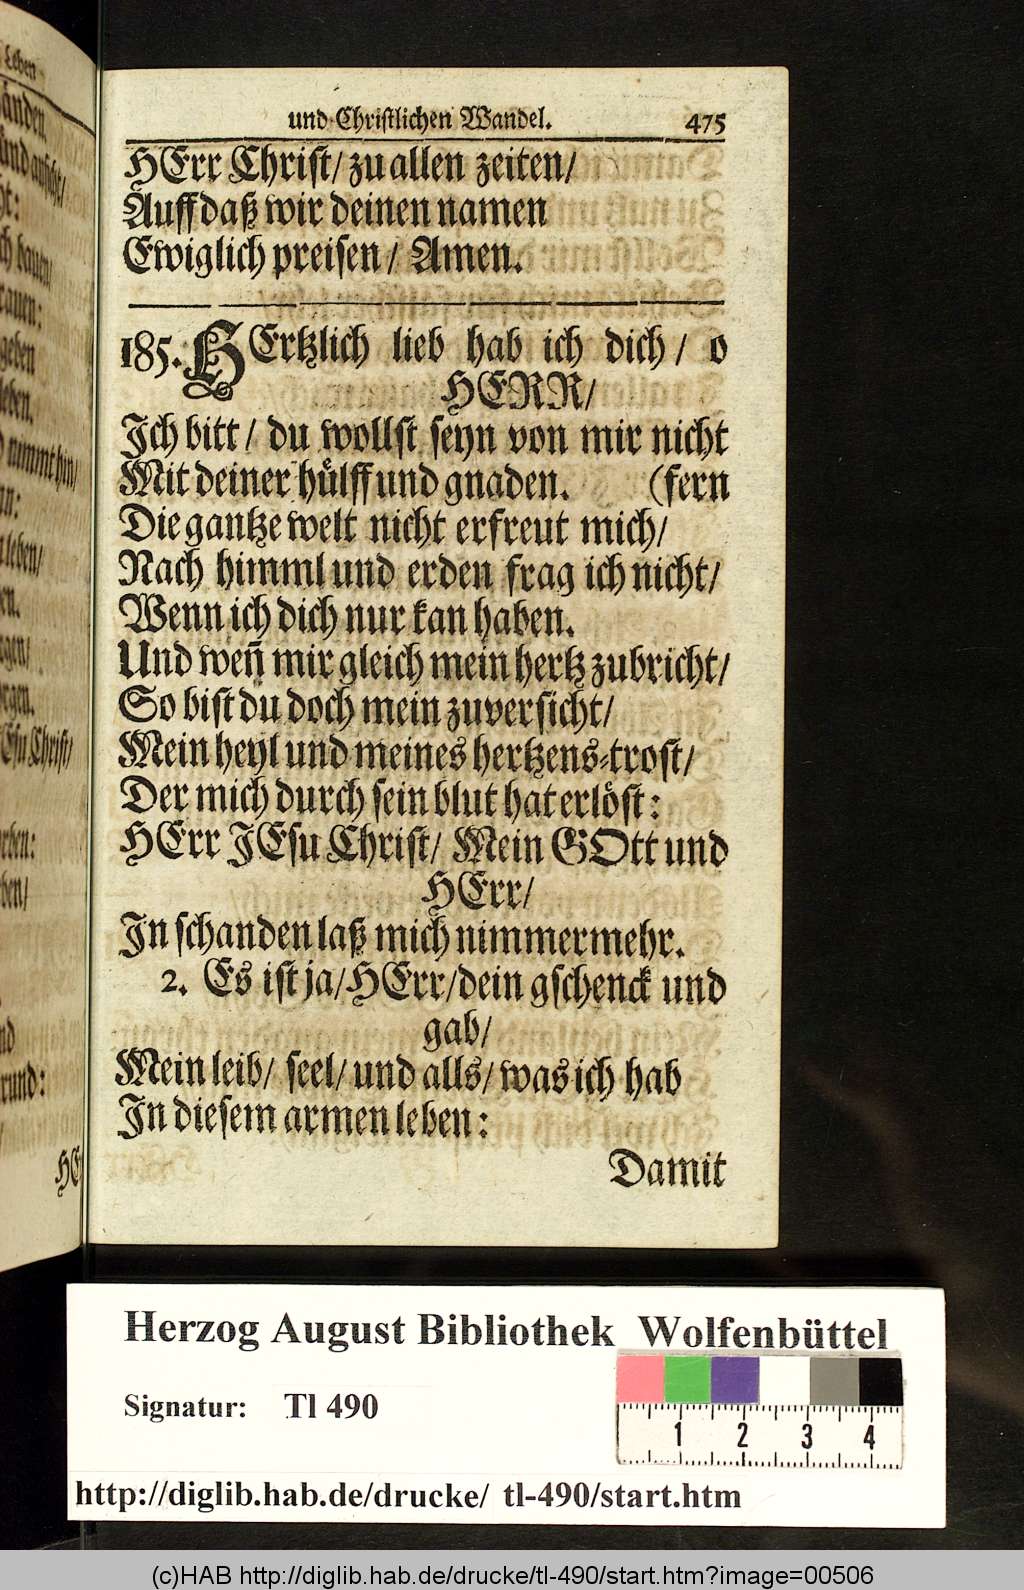 Leben
und Christlichen Wandel. 475
HErr Christ/ zu allen zeiten/
Auff daß wir deinen namen
Ewiglich preisen/ Amen.
185. HErtzlich lieb hab ich dich/ o
HERR/
Ich bitt/ du wollst seyn von mir nicht
Mit deiner hülff und gnaden. (fern
Die gantze welt nicht erfreut mich/
Nach himml und erden frag ich nicht/
Wenn ich dich nur kan haben.
Und weñ mir gleich mein hertz zubricht/
So bist du doch mein zuversicht/
Mein heyl und meines hertzens-trost/
Der mich durch sein blut hat erlöst:
HErr JEsu Christ/ Mein GOtt und
HErr/
In schanden laß mich nimmermehr.
2. Es ist ja/HErr/dein gschenck und
gab/
Mein leib/ seel/ und alls/ was ich hab
In diesem armen leben:
Damit
Herzog August Bibliothek Wolfenbüttel
Signatur: Tl 490
1 2 3 4
http://diglib.hab.de/drucke/ tl-490/start.htm
(c)HAB http://diglib.hab.de/drucke/tl-490/start.htm?image=00506